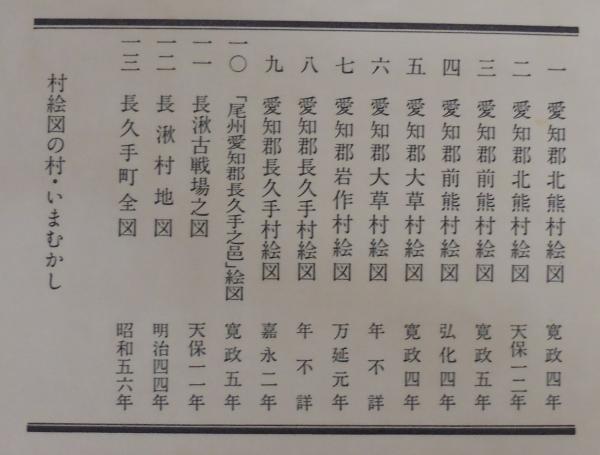 一 愛知郡北熊村絵図 寛政四年
二 愛知郡北熊村絵図 天保一二年
三 愛知郡前熊村絵図 寛政五年
四 愛知郡前熊村絵図 弘化四年
五 愛知郡大草村絵図 寛政四年
六 愛知郡大草村絵図 年不詳
七 愛知郡岩作村絵図 万延元年
八 愛知郡長久手村絵図 年不詳
九 愛知郡長久手村絵図 嘉永二年
一〇 「尾州愛知郡長久手之邑」絵図 寛政五年
一一 長湫古戦場之図 天保一一年
一二 長湫村地図 明治四四年
一三 長久手町全図 昭和五六年
村絵図の村・いまむかし